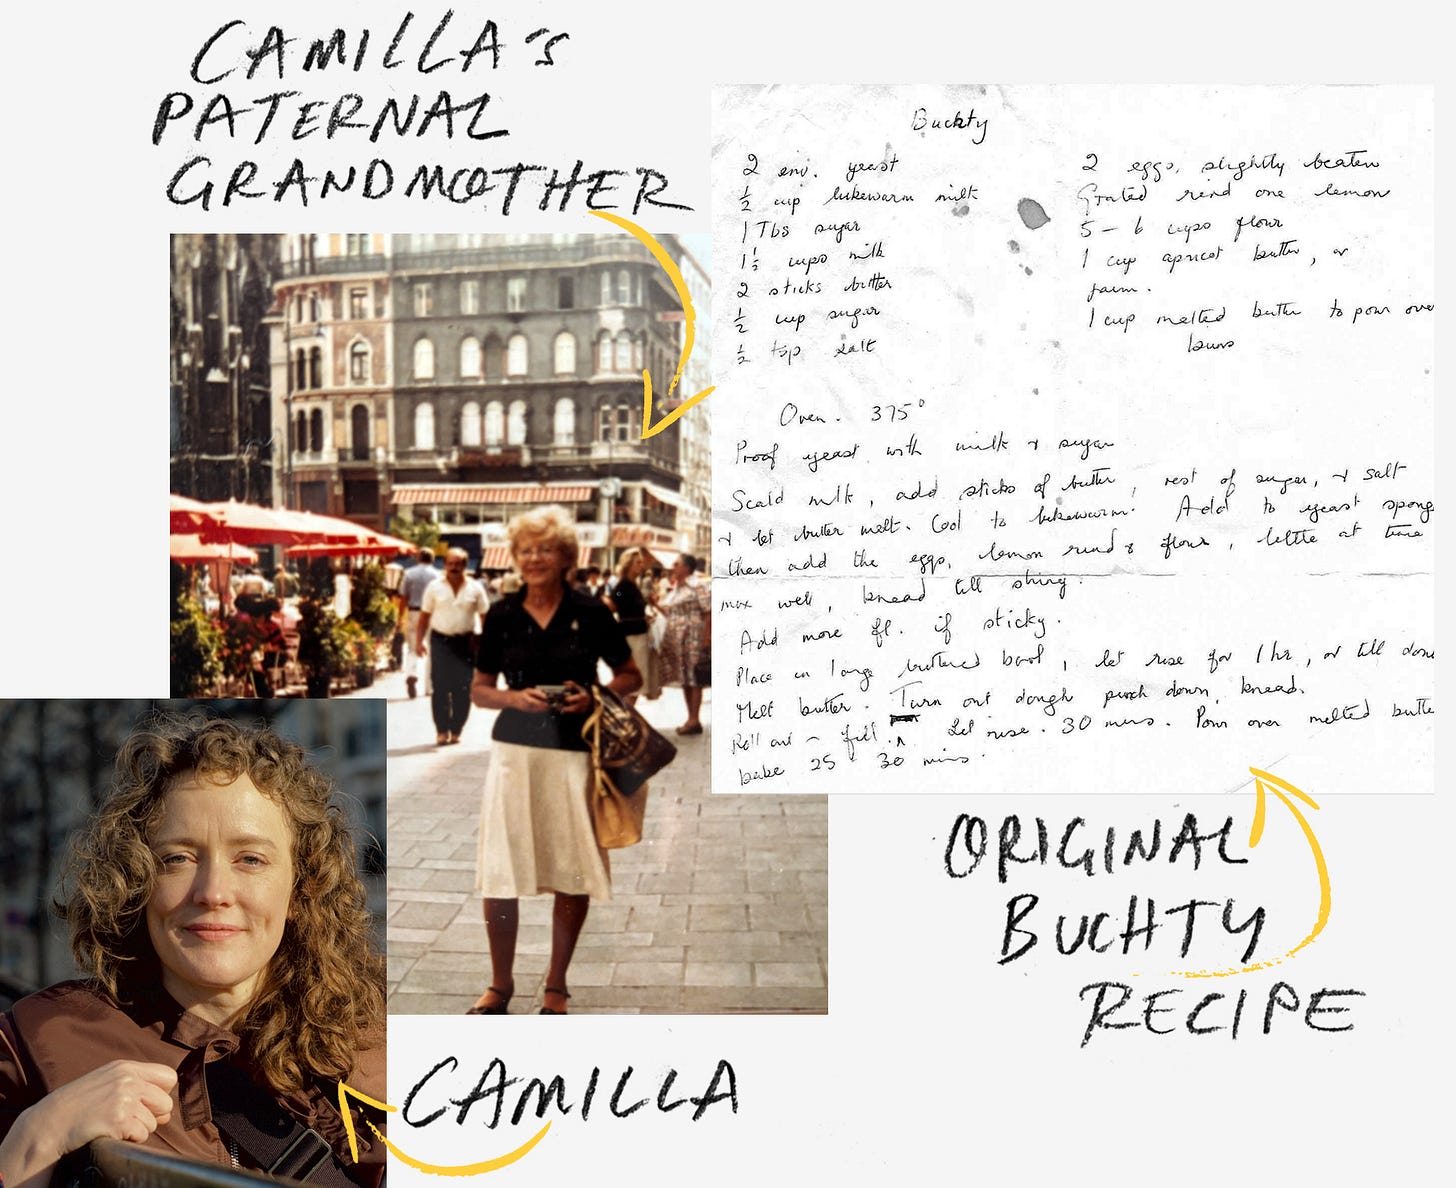 CAMILLA's
PATERNAL
GRANDMOTHER
Buckty
2 env. yeast
1/2 cup lukewarm milk
1 Tbs sugar
1 1/2 cups milk
2 sticks butter
1/2 cup sugar
1/2 tsp salt
2 eggs, slightly beaten
Grated rind one lemon
5 - 6 cups flour
1 cup apricot butter, or
jam.
1 cup melted butter to pour over
buns
Oven. 375°
Proof yeast with milk & sugar
Scald milk, add sticks of butter, rest of sugar, & salt
& let butter melt. Cool to lukewarm. Add to yeast sponge
then add the eggs, lemon rind & flour, little at time
mix well, knead till shiny.
Add more fl. if sticky.
Place in large buttered bowl, let rise for 1 hr, or till done
Melt butter. Turn out dough punch down, knead.
Roll out - fill. Let rise. 30 mins. Pour over melted butte
bake 25 30 mins.
ORIGINAL
BUCHTY
RECIPE
CAMILLA